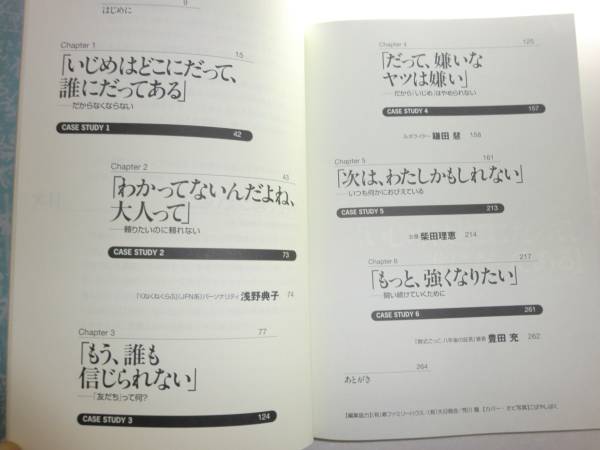 9
はじめに
Chapter 1
15
「いじめはどこにだって、
誰にだってある」
──だからなくならない
CASE STUDY 1
42
Chapter 2
43
「わかってないんだよね、
大人って」
──頼りたいのに頼れない
CASE STUDY 2
73
パーソナリティ 浅野典子 74
Chapter 3
77
「もう、誰も
信じられない」
──「友だち」って何?
CASE STUDY 3
124
Chapter 4
125
「だって、嫌いな
ヤツは嫌い」
──だから「いじめ」はやめられない
CASE STUDY 4
157
ルポライター 鎌田 慧 158
Chapter 5
161
「次は、わたしかもしれない」
──いつも何かにおびえている
CASE STUDY 5
213
女優 柴田理恵 214
Chapter 6
217
「もっと、強くなりたい」
──闘い続けていくために
CASE STUDY 6
261
「葬式ごっこ 八年後の証言」著者 豊田 充 262
264
あとがき